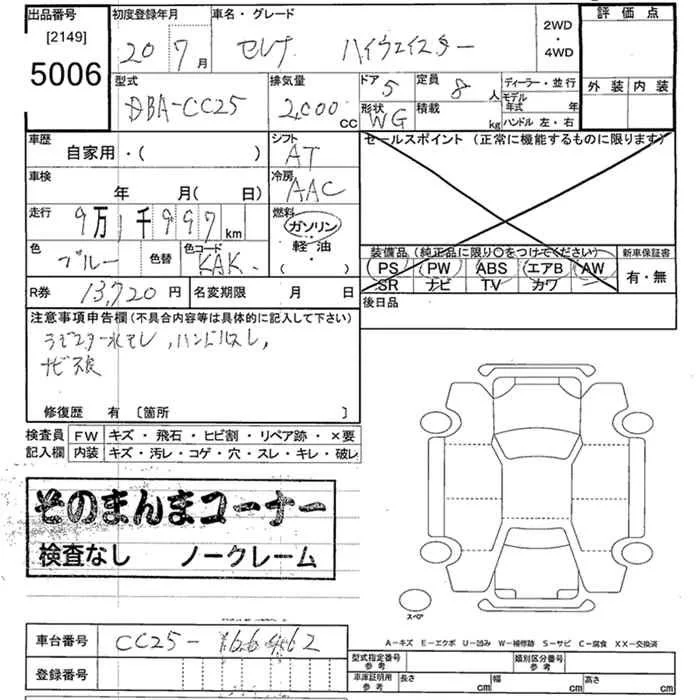 出品番号 [2149] 5006
初度登録年月 20 7月
車名・グレード セレナ ハイウェイスター
2WD・4WD
評価点
外装 内装
型式 DBA-CC25
排気量 2,000 CC
ドア 5 形状 WG
定員 8人 積載 kg
ディーラー・並行
モデル年式 年
ハンドル 左・右
車歴 自家用・( )
シフト AT
セールスポイント (正常に機能するものに限ります)
車検 年 月( 日)
冷房 AAC
走行 9万1千997km
燃料 ガソリン・軽油・( )
色 ブルー 色替 色コード KAK.
装備品 (純正品に限り○をつけてください) 新車保証書
PS PW ABS エアB AW 有・無
SR ナビ TV カワ
R券 13,720円 名変期限 月 日
後日品
注意事項申告欄(不具合内容等は具体的に記入して下さい)
ラジエター水モレ,ハンドルスレ,
修復歴 有 [箇所 ]
検査員 FW キズ・飛石・ヒビ割・リペア跡・×要
記入欄 内装 キズ・汚レ・コゲ・穴・スレ・キレ・破レ
そのまんまコーナー
検査なし ノークレーム
スペア
A-キズ E-エクボ U-凹み W-補修跡 S-サビ C-腐食 XX-交換済
車台番号 CC25-166462
登録番号
型式指定番号 参考 類別区分番号 参考
車庫証明用 参考 長さ cm 幅 cm 高さ cm